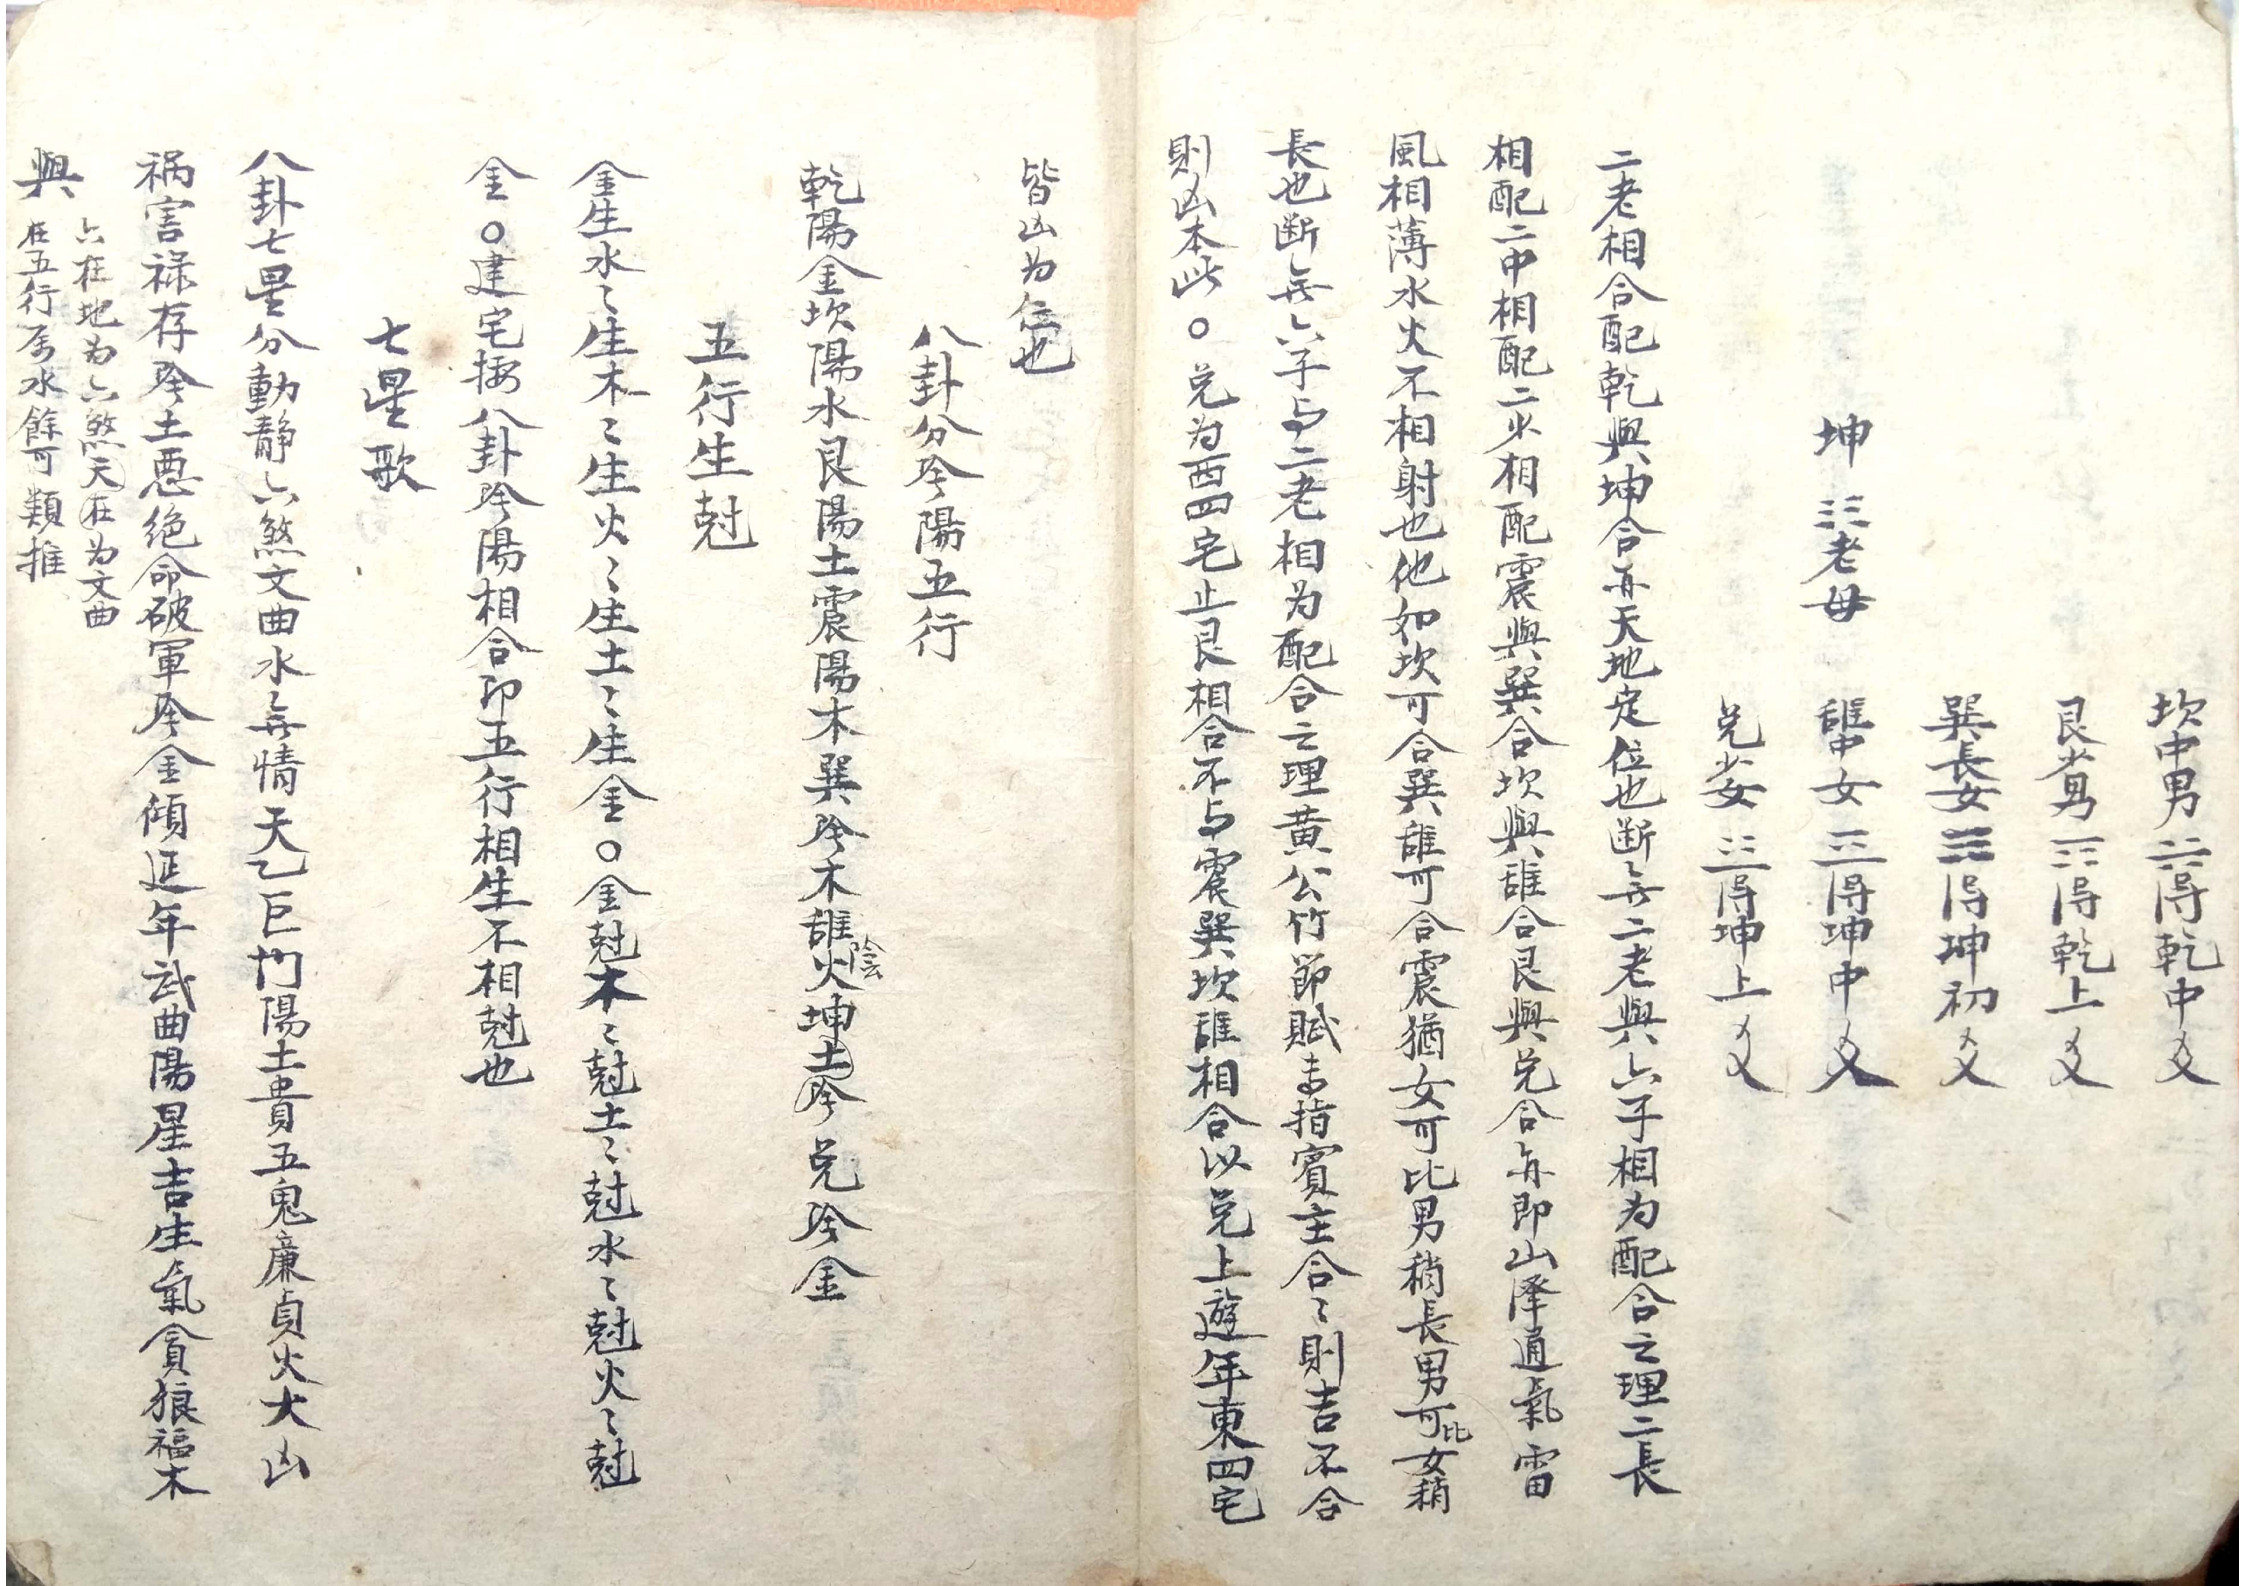 坎中男☵得乾中爻
艮少男☶得乾上爻
巽長女☴得坤初爻
坤☷老母 離中女☲得坤中爻
兌少女☱得坤上爻
二老相合配乾與坤合亦天地定位也断無二老與六子相为配合之理二長
相配二中相配二少相配震與巽合坎與離合艮與兌合亦即山澤通氣雷
風相薄水火不相射也他如坎可合巽離可合震猶女可比男稍長男可比女稍
長也断無六子与二老相为配合之理黄公竹節賦专指賓主合〻則吉不合
則凶本此○兌为西四宅止艮相合不与震巽坎離相合以兌上遊年東四宅
皆凶为伍也
八卦分阴陽五行
乾陽金坎陽水艮陽土震陽木巽阴木離陰火坤土阴兌阴金
五行生尅
金生水〻生木〻生火〻生土〻生金○金尅木〻尅土〻尅水〻尅火〻尅
金○建宅按八卦阴陽相合卯五行相生不相尅也
七星歌
八卦七星分動静六煞文曲水無情天乙巨門陽土貴五鬼廉貞火大凶
祸害禄存阴土惡絶命破軍阴金傾延年武曲陽星吉生氣貪狼福木
與 六在地为六煞天在为文曲
在五行属水餘可類推